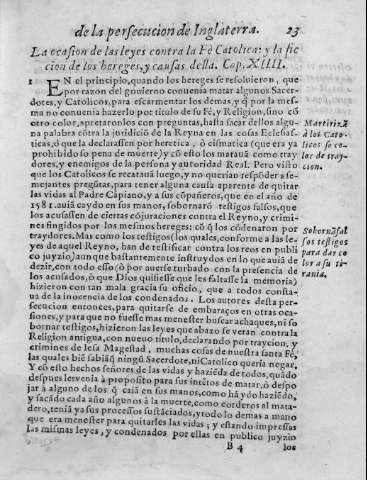 de la persecucion de Inglaterra. 23
La ocasion de las leyes contra la Fè Catolica: y la fic
cion de los hereges, y causas della. Cap, XIIII.
1 EN el principio, quando los hereges se resoluieron, que
por razon del gouierno conuenia matar algunos Sacer-
dotes, y Catolicos, para escarmentar los demas, y q̃ por la mes-
ma no conuenia hazerlo por titulo de su Fè, y Religion, sino cõ
otro color, apretaronlos con preguntas, hasta sacar dellos algu-
na palabra cõtra la juridiciõ de la Reyna en las cosas Eclesias-
ticas, ò que la declarassen por heretica, ò cismatica (que era ya
prohibido so pena de muerte) y cõ esto los matauã como tray
dores, y enemigos de la persona y autoridad Real. Pero visto
que los Catolicos se recatauã luego, y no querian respõder a se-
mejantes pregũtas, para tener alguna causa aparente de quitar
las vidas al Padre Cãpiano, y a sus cõpañeros, que en el año de
1581. auiã caydo en sus manos, sobornarõ testigos falsos, que
los acusassen de ciertas cõjuraciones contra el Reyno, y crimi-
nes fingidos por los mesmos hereges: cõ q̃ los cõdenaron por
traydores. Mas como los testigos (los quales, conforme a las le-
yes de aquel Reyno, han de testificar contra los reos en publi
co juyzio) aunque bastantemente instruydos en lo que auiã de
dezir, con todo esso (ò por auerse turbado con la presencia de
los acusados, ò que Dios quisiesse que les faltasse la memoria)
hizieron con tan mala gracia su oficio, que a todos consta-
ua de la inocencia de los condenados. Los autores desta per-
secucion entonces, para quitarse de embaraços en otras oca-
siones, y para que no fuesse mas menester buscar achaques, ni so
bornar testigos, hizieron las leyes que abaxo se veran contra la
Religion antigua, con nueuo titulo, declarando por traycion, y
crimines de lesa Magestad, muchas cosas de nuestra santa Fè,
las quales biẽ sabiãq̃ ningũ Sacerdote, ni Catolico queria negar,
Y cõ esto hechos señores de las vidas y haziẽda de todos, quãdo
despues les venia à proposito para sus intẽtos de matar, ò despo
jar à alguno de los q̃ caiã en sus manos, como hã y do haziẽdo,
y sacãdo cada año algunos à la muerte, como corderos al mata-
dero, teniã ya sus processos sustãciados, y todo lo demas a mano
que era menester para quitarles las vidas; y estando impressas
las mismas leyes, y condenados por ellas en publico juyzio
Martirizã
à los Cato-
licos so co-
lor de tray-
cion.
Sobornã fal
sos testigos
para dar co
lor a su ti-
rania.
B 4 los